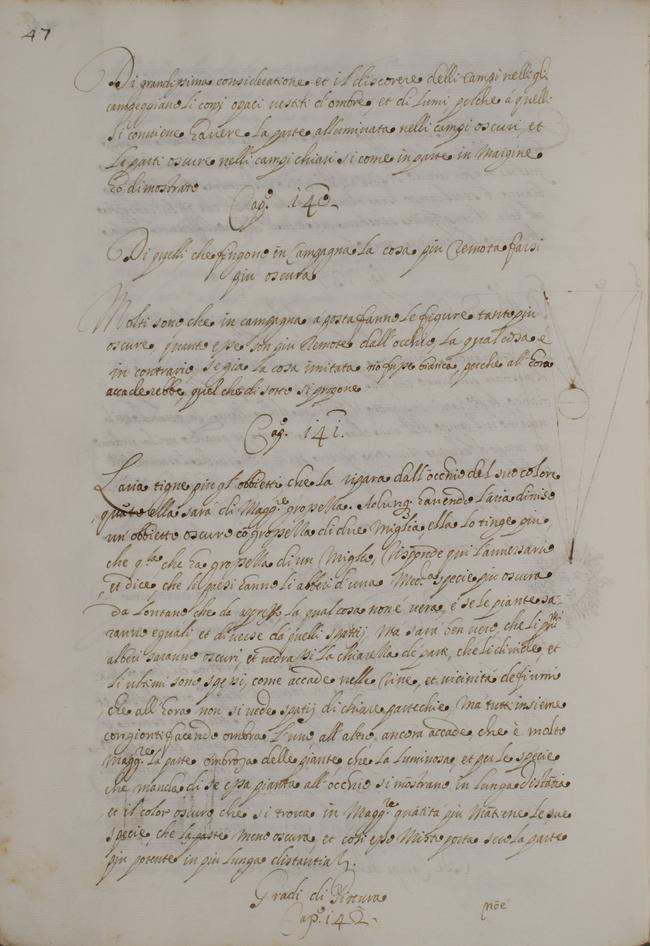 47
Di grandissima consideratione et il discorere delli campi nelli q.li
campeggiano li corpi opaci vestiti d'ombre, et di lumi perche à quelli
si conviene havere la parte alluminata nelli campi oscuri, et
le parti oscure nelli campi chiari si come in parte in Margine
ho dimostrato
Cap.º 140.
Di quelli che fingono in Campagna la cosa piu Remota farsi
piu oscura
Molti sono che in campagna aperta fanno le figure tanto piu
oscure quanto esse son piu Remote dall'occhio la qual cosa è
in contrario se gia la cosa imitata nō fusse bianca, perche all'hora
accaderebbe quel che di sotto si propone
Cap.º 141.
L'aria tigne piu gl'obbietti che la separa dall'occhio del suo colore
quāto ella sarà di Magg.re grossezza. Adunq. havendo l'aria diviso
un'obbietto oscuro cō grossezza di due Miglia, ella lo tinge piu
che q.lla che ha grossezza di un Miglio, Risponde qui l'aversario
et dice, che li paesi hanno li alberi d'una Med.ma specie piu oscura
da lontano che da appresso la qual cosa non è vera, è se le piante sa-
ranno equali et divise da quelli spatij, Ma sarà ben vero, che li p.mi
alberi saranno oscuri, et vedrassi la chiarezza de prati, che li divide, et
li ultimi sono spessi, come accade nelle Rive, et vicinità de fiumi
che all'hora non si vede spatij di chiare praterie, Ma tutte insieme
congionti facendo ombra l'uno all'altro, ancora accade, che è molto
Magg.re la parte ombrosa delle piante che la luminosa, et per le specie
che manda di se essa pianta all'occhio si mostrano in lunga distātia
et il color oscuro che si trova in Magg.re quātità piu Mātiene le sue
specie, che la parte meno oscura, et cosi esso Misto porta seco la parte
piu potente in piu lunga distantia
Gradi di Pittura
Cap.º 142.